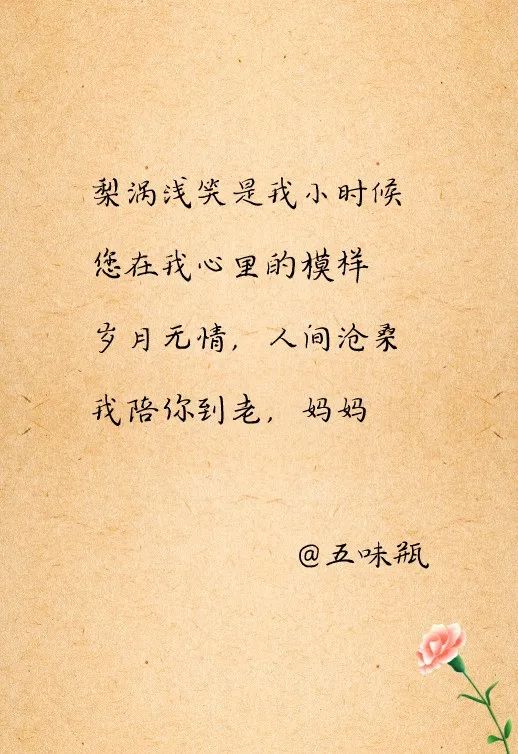 梨涡浅笑是我小时候
您在我心里的模样
岁月无情，人间沧桑
我陪你到老，妈妈
@五味瓶